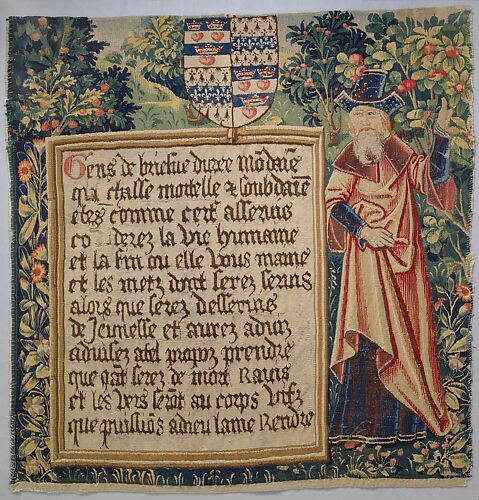 Gens de briefue duree mōdaīe
qui chasse mortelle & soubdaīe
estes comme cerf asseruis
considerez la vie humaine
et la fin ou elle vous maine
et les metz dont serez seruis
alors que serez desseruis
de Jeunesse et aurez aduiz
aduisez a tel propoz prendre
que q̄āt serez de mort Rauis
et les vers serōt au corps vifz
que puissiōs a dieu lame Rendre